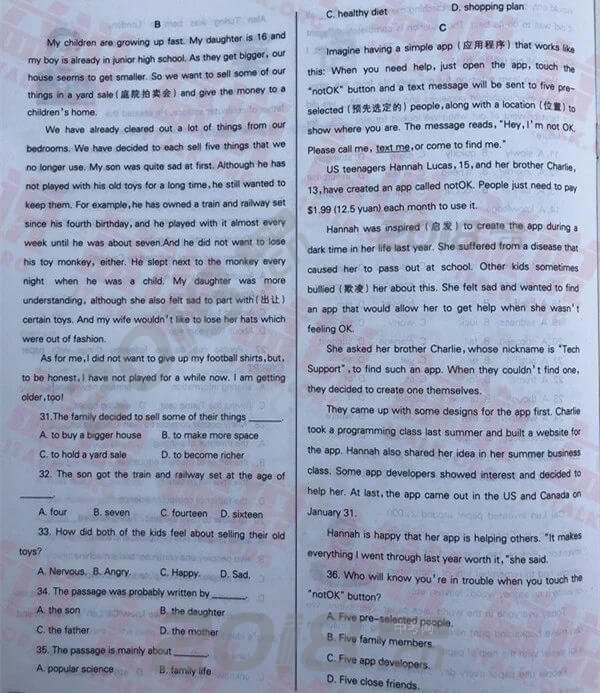 B
My children are growing up fast. My daughter is 16 and
my boy is already in junior high school. As they get bigger, our
house seems to get smaller. So we want to sell some of our
things in a yard sale(庭院拍卖会) and give the money to a
children's home.
We have already cleared out a lot of things from our
bedrooms. We have decided to each sell five things that we
no longer use. My son was quite sad at first. Although he has
not played with his old toys for a long time, he still wanted to
keep them. For example, he has owned a train and railway set
since his fourth birthday, and he played with it almost every
week until he was about seven.And he did not want to lose
his toy monkey, either. He slept next to the monkey every
night when he was a child. My daughter was more
understanding, although she also felt sad to part with(出让)
certain toys. And my wife wouldn't like to lose her hats which
were out of fashion.
As for me,I did not want to give up my football shirts,but,
to be honest,I have not played for a while now. I am getting
older,too!
31.The family decided to sell some of their things ______.
A. to buy a bigger house B. to make more space
C. to hold a yard sale D. to become richer
32. The son got the train and railway set at the age of
______.
A. four B. seven C. fourteen D. sixteen
33. How did both of the kids feel about selling their old
toys?
A. Nervous. B. Angry. C. Happy. D. Sad.
34. The passage was probably written by ______.
A. the son B. the daughter
C. the father D. the mother
35. The passage is mainly about ______.
A. popular science B. family life
C. healthy diet D. shopping plan
C
Imagine having a simple app (应用程序) that works like
this: When you need help, just open the app, touch the
"notOK" button and a text message will be sent to five pre-
selected (预先选定的) people,along with a location (位置) to
show where you are. The message reads, "Hey, I'm not OK.
Please call me, text me,or come to find me."
US teenagers Hannah Lucas, 15,and her brother Charlie,
13,have created an app called notOK. People just need to pay
$1.99 (12.5 yuan) each month to use it.
Hannah was inspired (启发) to create the app during a
dark time in her life last year. She suffered from a disease that
caused her to pass out at school. Other kids sometimes
bullied (欺凌) her about this. She felt sad and wanted to find
an app that would allow her to get help when she wasn't
feeling OK.
She asked her brother Charlie, whose nickname is "Tech
Support", to find such an app. When they couldn't find one,
they decided to create one themselves.
They came up with some designs for the app first. Charlie
took a programming class last summer and built a website for
the app. Hannah also shared her idea in her summer business
class. Some app developers showed interest and decided to
help her. At last, the app came out in the US and Canada on
January 31.
Hannah is happy that her app is helping others. "It makes
everything I went through last year worth it, "she said.
36. Who will know you're in trouble when you touch the
"notOK" button?
A. Five pre-selected people.
B. Five family members.
C. Five app developers.
D. Five close friends.